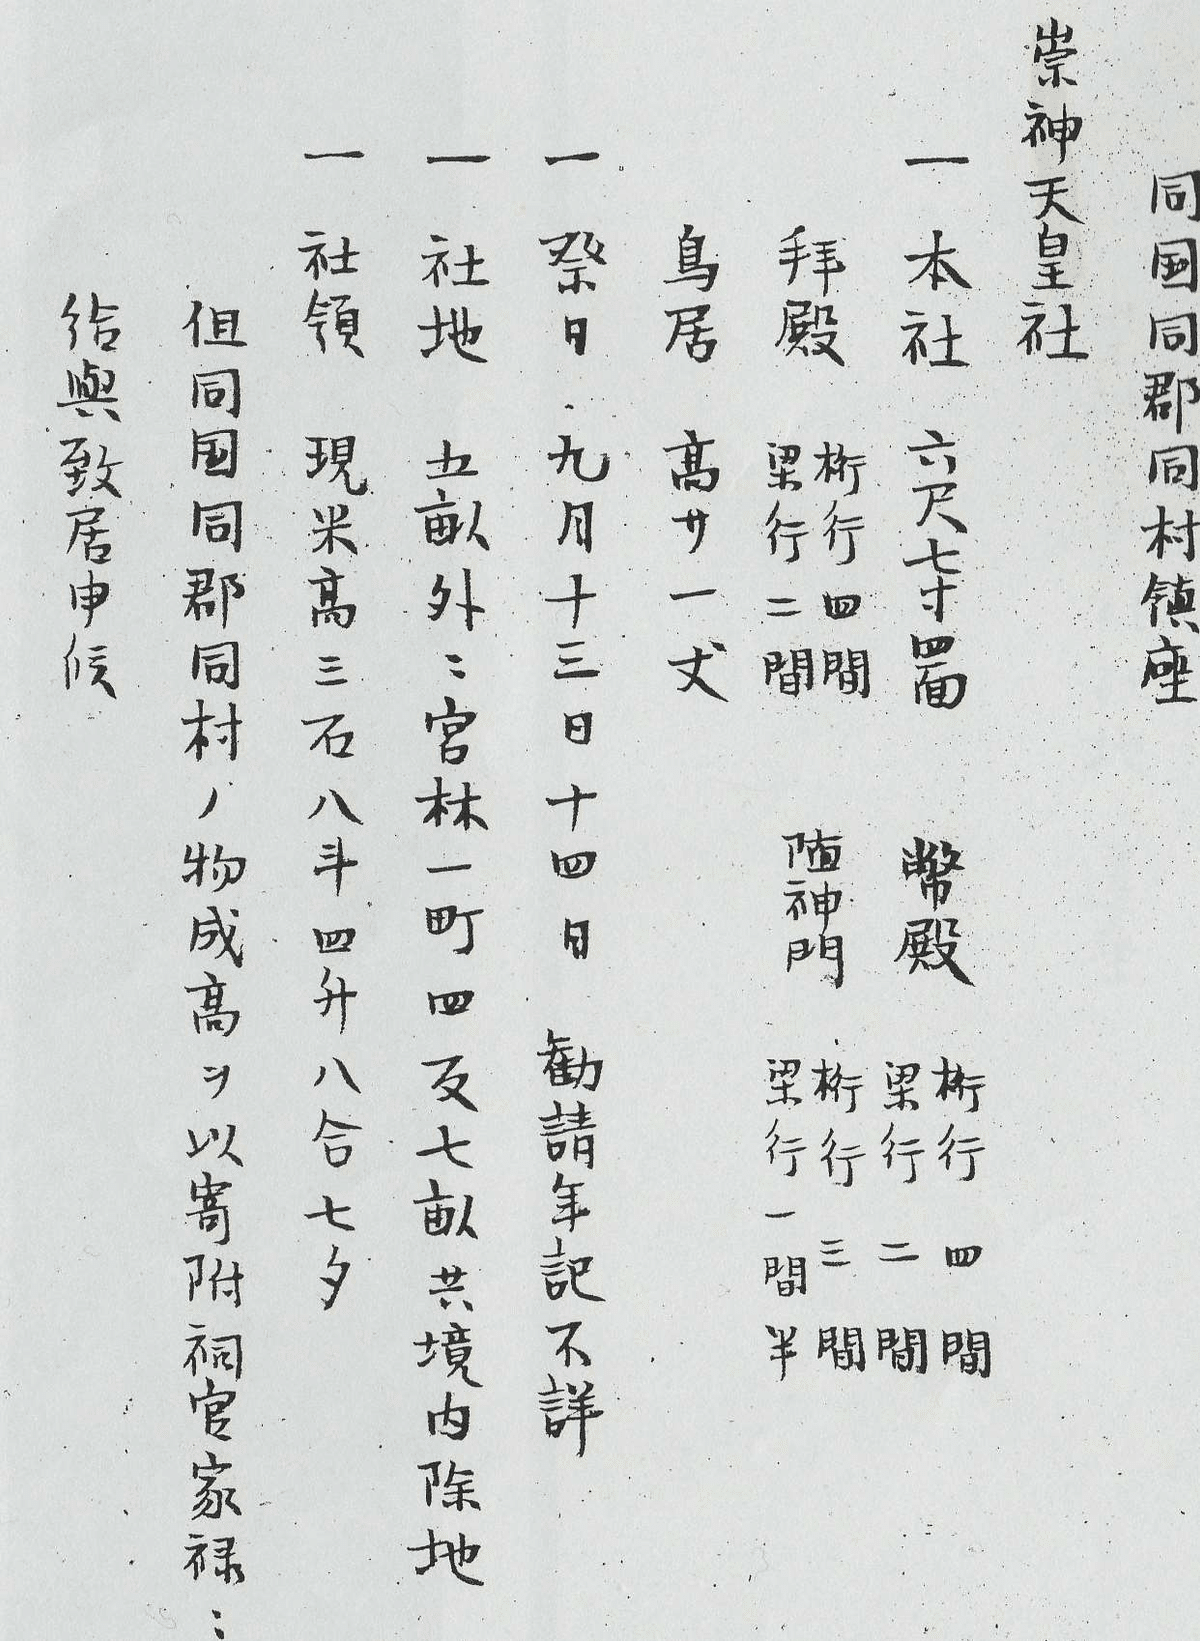 同国同郡同村鎮座
崇神天皇社
一 本社 六尺七寸四面 幣殿 桁行四間 梁行二間
拜殿 桁行四間 梁行二間 随神門 桁行三間 梁行一間半
鳥居 高サ一丈
一 祭日 九月十三日十四日 勧請年記不詳
一 社地 五畝外ニ宮林一町四反七畝共境内除地
一 社領 現米高三石八斗四升八合七夕
但同国同郡同村ノ物成高ヲ以寄附祠官家禄ニ
給與致居申候